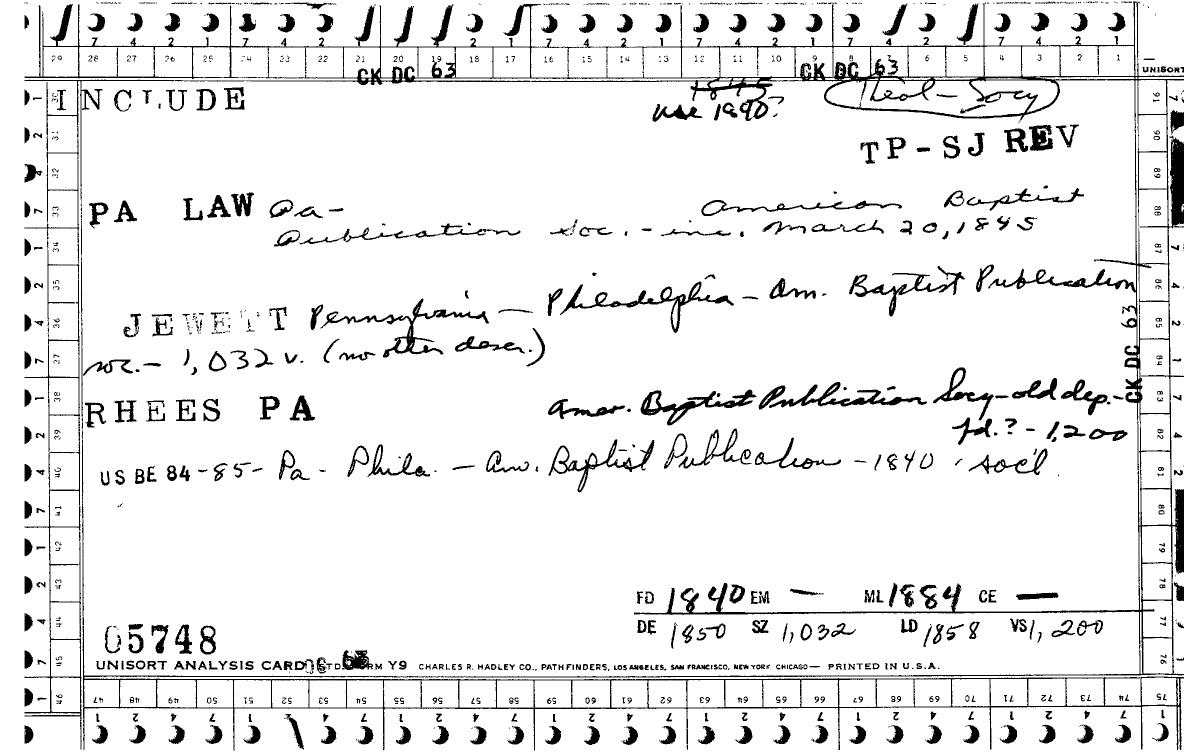 7 4 2 1 7 4 2 1 7 4 2 1 7 4 2 1 7 4 2 1 7 4 2 1 7 4 2 1
29 28 27 26 25 24 23 22 21 20 19 18 17 16 15 14 13 12 11 10 9 8 7 6 5 4 3 2 1
CK DC 63 CK DC 63 UNISORT
INCLUDE 1845 Theol-Socy
use 1840?
TP-SJ REV
PA LAW Pa- American Baptist
Publication Soc. - inc. March 20, 1845
JEWETT Pennsylvania - Philadelphia - Am. Baptist Publication
soc. - 1,032 v. (no other descr.)
CK DC 63
RHEES PA Amer. Baptist Publication Socy - old dep. -
fd.? - 1,200
US BE 84-85- Pa - Phila. - Am. Baptist Publication - 1840 soc'l
FD 1840 EM — ML 1884 CE —
DE 1850 SZ 1,032 LD 1858 VS 1,200
05748
UNISORT ANALYSIS CARD FORM Y9 CHARLES R. HADLEY CO., PATHFINDERS, LOS ANGELES, SAN FRANCISCO, NEW YORK CHICAGO — PRINTED IN U.S.A.
46 47 48 49 50 51 52 53 54 55 56 57 58 59 60 61 62 63 64 65 66 67 68 69 70 71 72 73 74 75